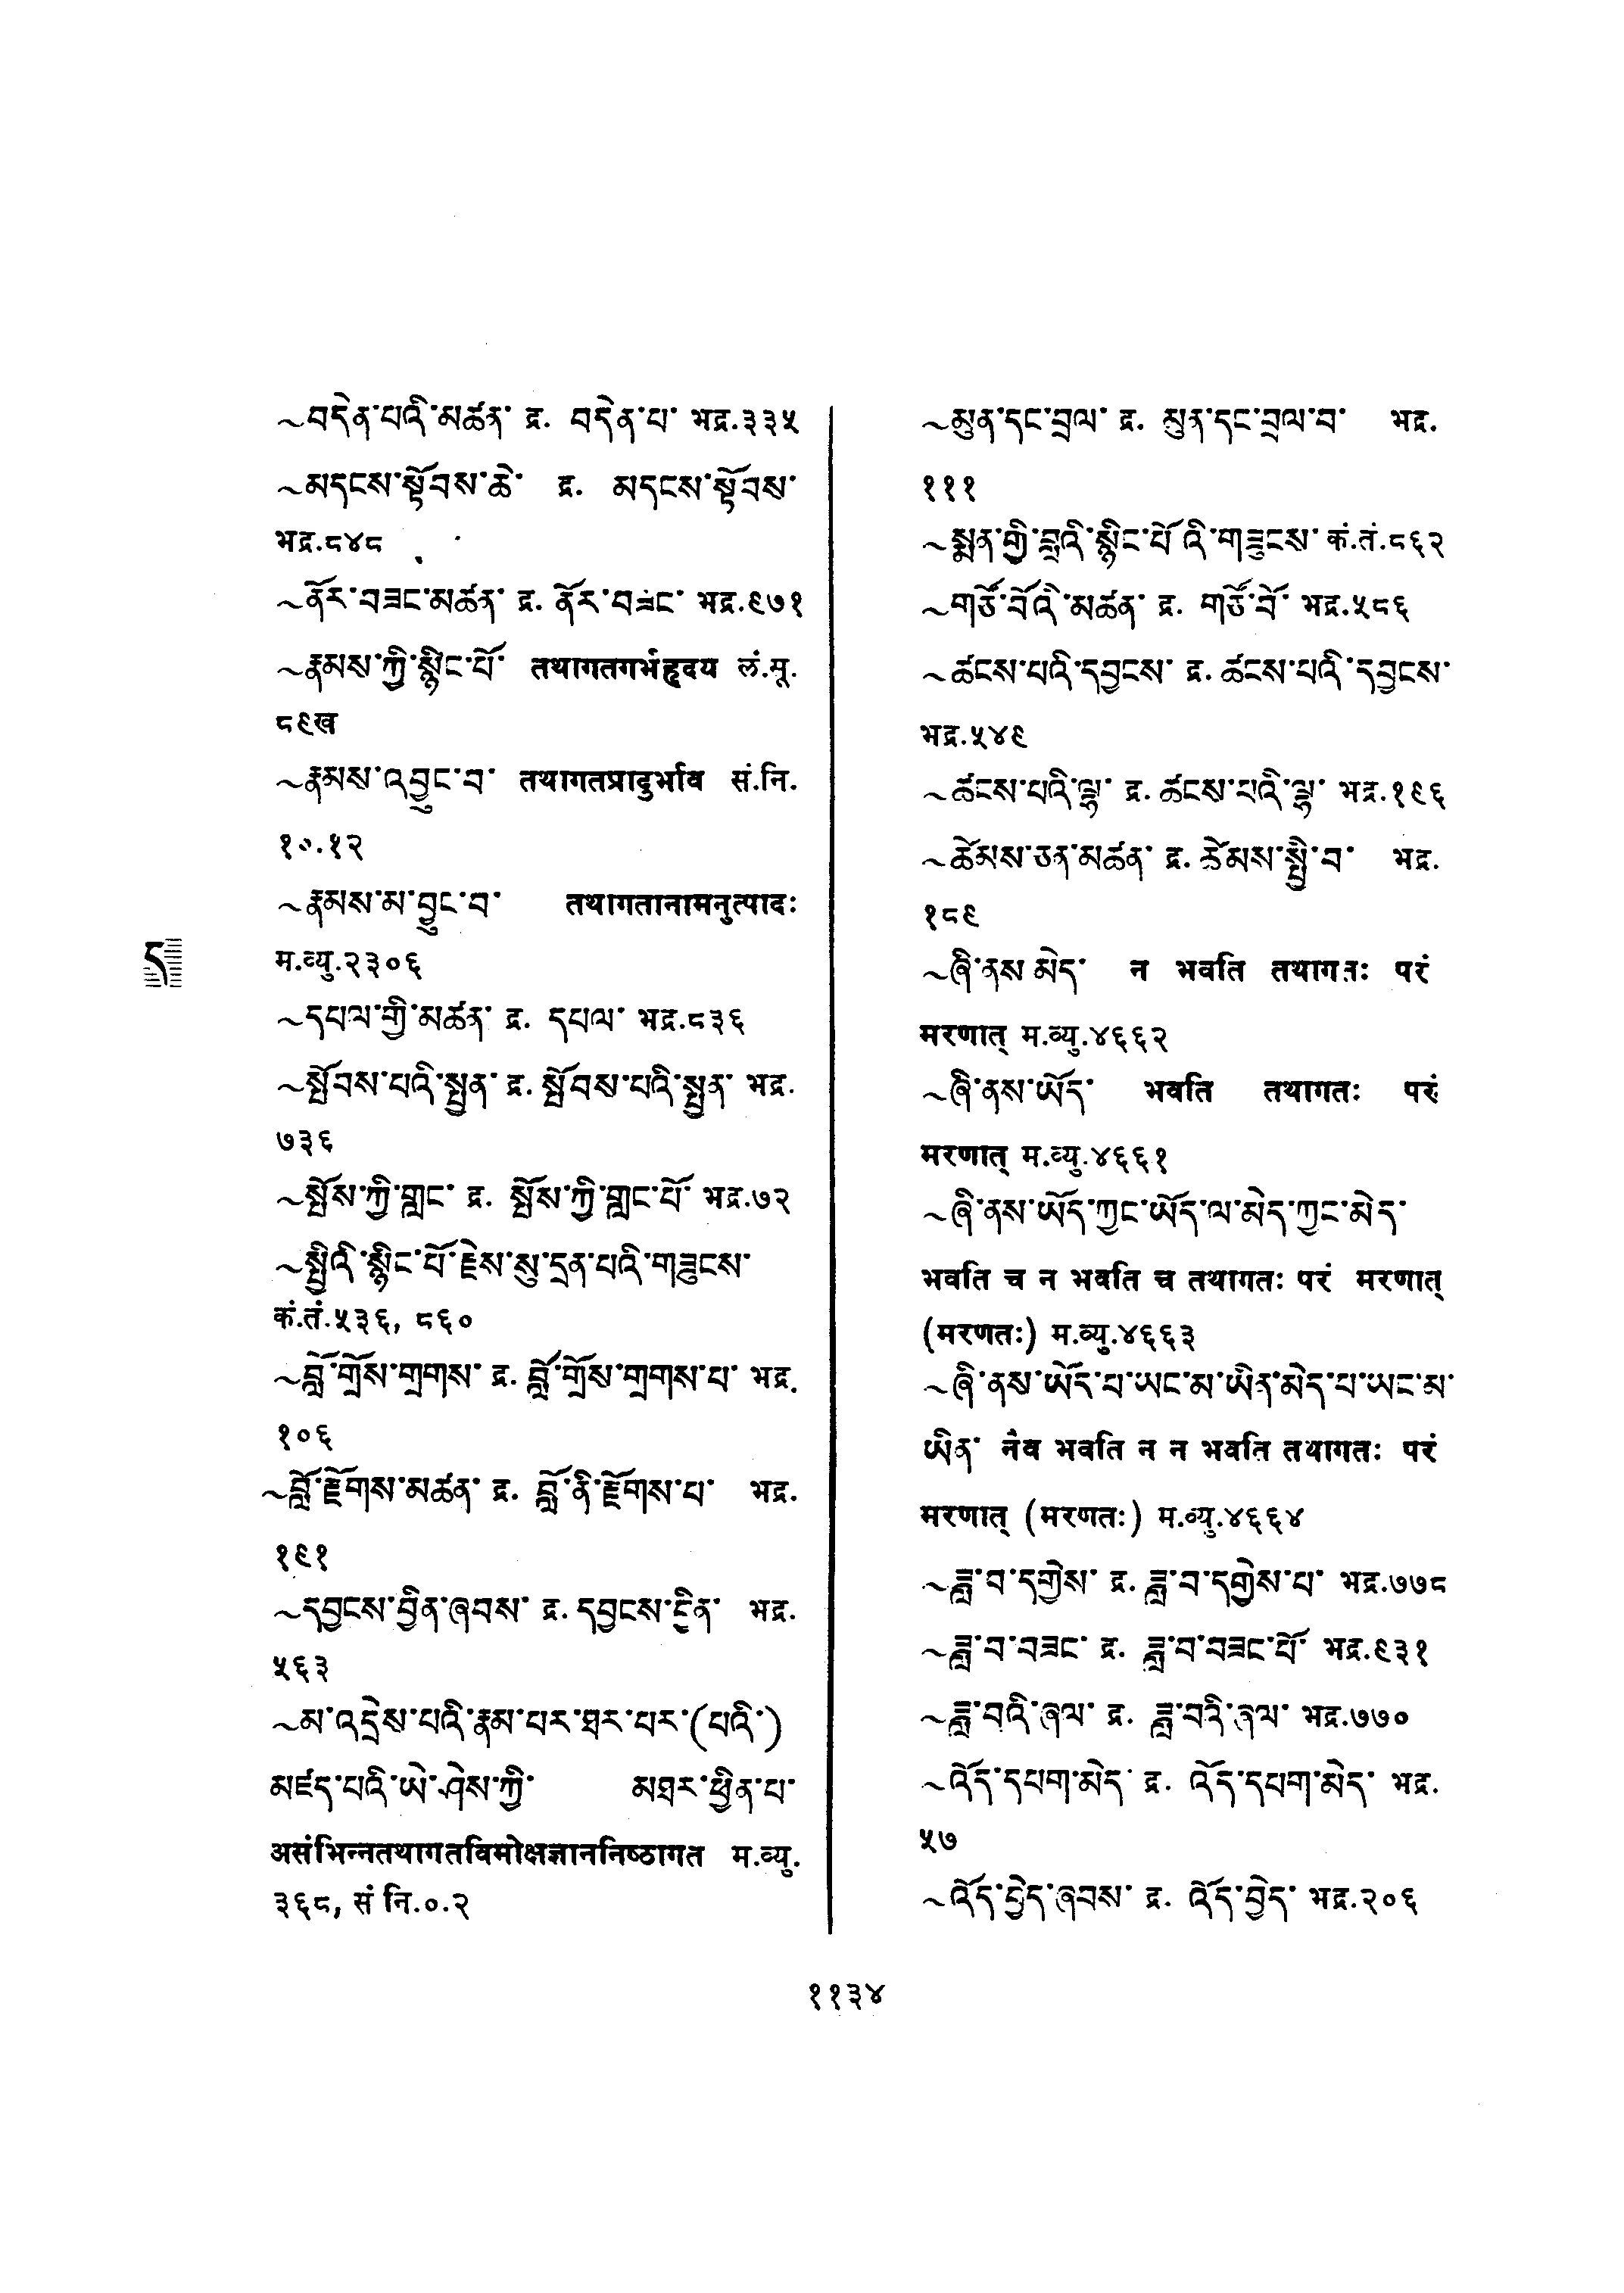 ~བདེན་པའི་མཚན་ द्र. བདེན་པ་ भद्र.३३५
~མདངས་སྟོབས་ཆེ་ द्र. མདངས་སྟོབས་
भद्र.८४८
~ནོར་བཟང་མཚན་ द्र. ནོར་བཟང་ भद्र.९७१
~རྣམས་ཀྱི་སྙིང་པོ་ तथागतगर्भहृदय लं.मू.
८९ख
~རྣམས་འབྱུང་བ་ तथागतप्रादुर्भाव सं.नि.
१०.१२
~རྣམས་མ་བྱུང་བ་ तथागतानामनुत्पादः
म.व्यु.२३०६
~དཔལ་གྱི་མཚན་ द्र. དཔལ་ भद्र.८३६
~སྤོབས་པའི་སྤྱན་ द्र. སྤོབས་པའི་སྤྱན་ भद्र.
७३६
~སྤོས་ཀྱི་གླང་ द्र. སྤོས་ཀྱི་གླང་པོ་ भद्र.७२
~སྤྱིའི་སྙིང་པོ་རྗེས་སུ་དྲན་པའི་གཟུངས་
कं.तं.५३६, ८६०
~བློ་གྲོས་གྲགས་ द्र. བློ་གྲོས་གྲགས་པ་ भद्र.
१०६
~བློ་རྫོགས་མཚན་ द्र. བློ་ནི་རྫོགས་པ་ भद्र.
१९१
~དབྱངས་བྱིན་ཞབས་ द्र. དབྱངས་བྱིན་ भद्र.
५६३
~མ་འདྲེས་པའི་རྣམ་པར་ཐར་པར་(པའི་)
མཛད་པའི་ཡེ་ཤེས་ཀྱི་ མཐར་ཕྱིན་པ་
असंभिन्नतथागतविमोक्षज्ञाननिष्ठागत म.व्यु.
३६८, सं नि.०.२
~མུན་དང་བྲལ་ द्र. མུན་དང་བྲལ་བ་ भद्र.
१११
~སྨན་གྱི་བླའི་སྙིང་པོ་འི་གཟུངས་ कं.तं.८६२
~གཙོ་བོའི་མཚན་ द्र. གཙོ་བོ་ भद्र.५८६
~ཚངས་པའི་དབྱངས་ द्र. ཚངས་པའི་དབྱངས་
भद्र.५४९
~ཚངས་པའི་ལྷ་ द्र. ཚངས་པའི་ལྷ་ भद्र.१९६
~ཚེམས་ཅན་མཚན་ द्र. ཚེམས་སྤྱི་བ་ भद्र.
१८९
~ཞི་ནས་མེད་ न भवति तथागतः परं
मरणात् म.व्यु.४६६२
~ཞི་ནས་ཡོད་ भवति तथागतः परं
मरणात् म.व्यु.४६६१
~ཞི་ནས་ཡོད་ཀྱང་ཡོད་ལ་མེད་ཀྱང་མེད་
भवति च न भवति च तथागतः परं मरणात्
(मरणतः) म.व्यु.४६६३
~ཞི་ནས་ཡོད་པ་ཡང་མ་ཡིན་མེད་པ་ཡང་མ་
ཡིན་ नैव भवति न न भवति तथागतः परं
मरणात् (मरणतः) म.व्यु.४६६४
~ཟླ་བ་དགྱེས་ द्र. ཟླ་བ་དགྱེས་པ་ भद्र.७७८
~ཟླ་བ་བཟང་ द्र. ཟླ་བ་བཟང་པོ་ भद्र.९३१
~ཟླ་བའི་ཞལ་ द्र. ཟླ་བའི་ཞལ་ भद्र.७७०
~འོད་དཔག་མེད་ द्र. འོད་དཔག་མེད་ भद्र.
५७
~འོད་བྱེད་ཞབས་ द्र. འོད་བྱེད་ भद्र.२०६
ད
११३४